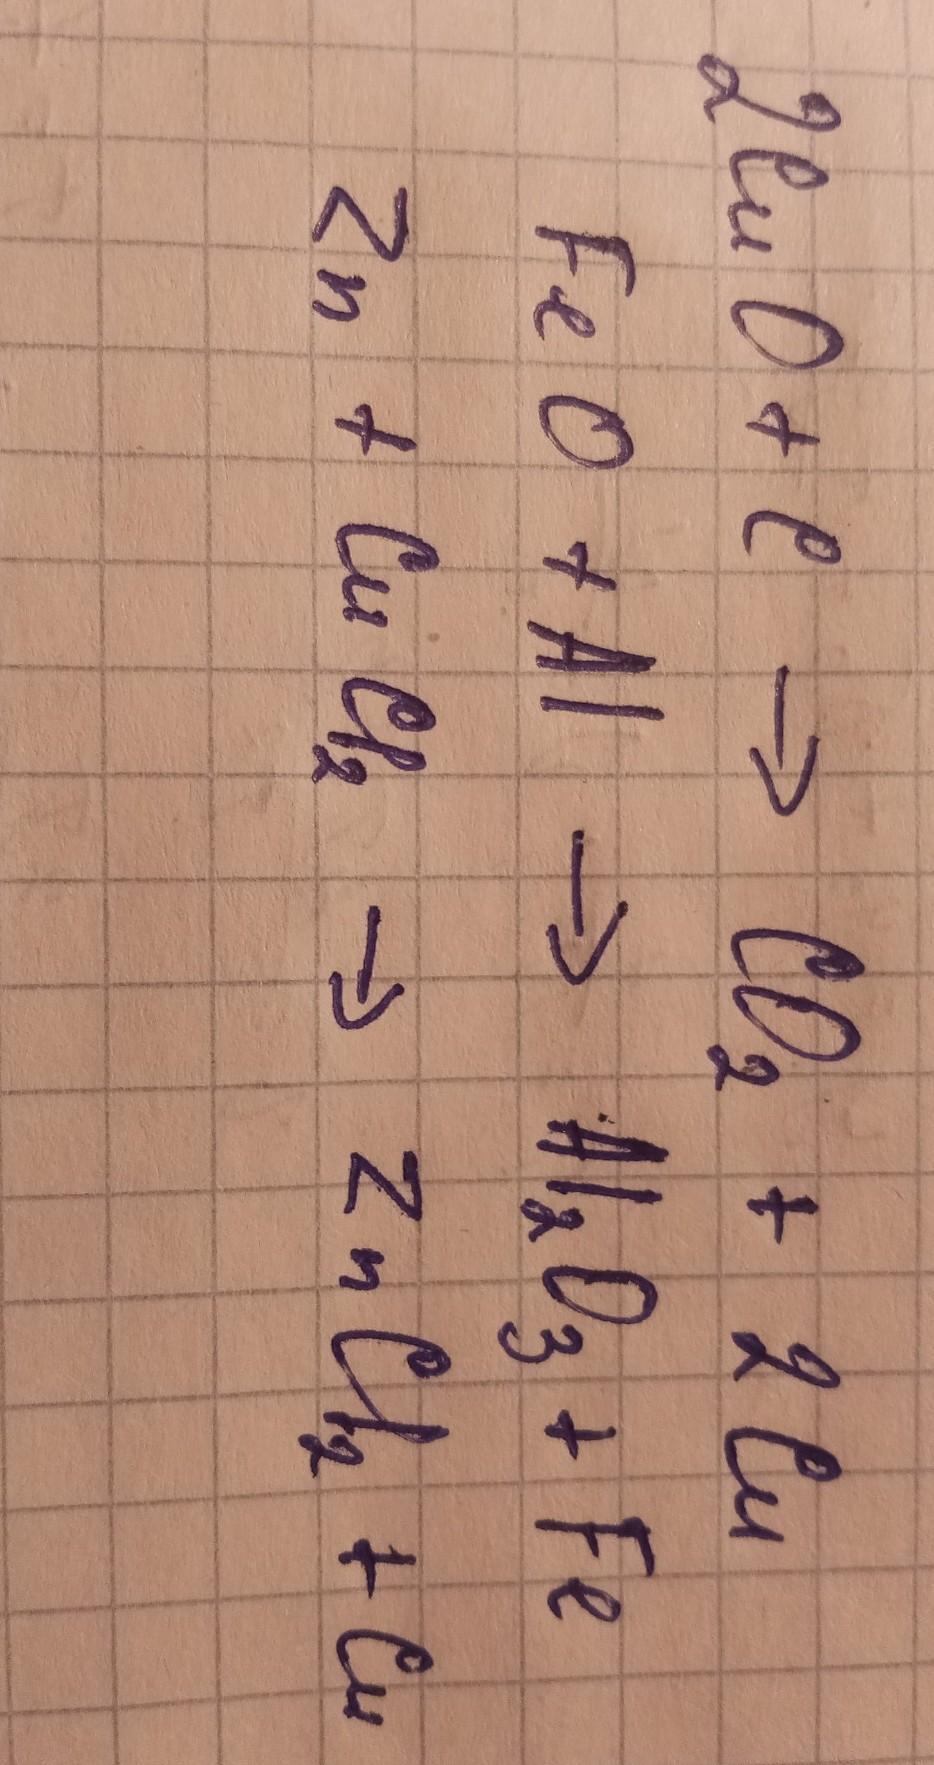 2CuO + C → CO₂ + 2Cu
FeO + Al → Al₂O₃ + Fe
Zn + CuCl₂ → ZnCl₂ + Cu